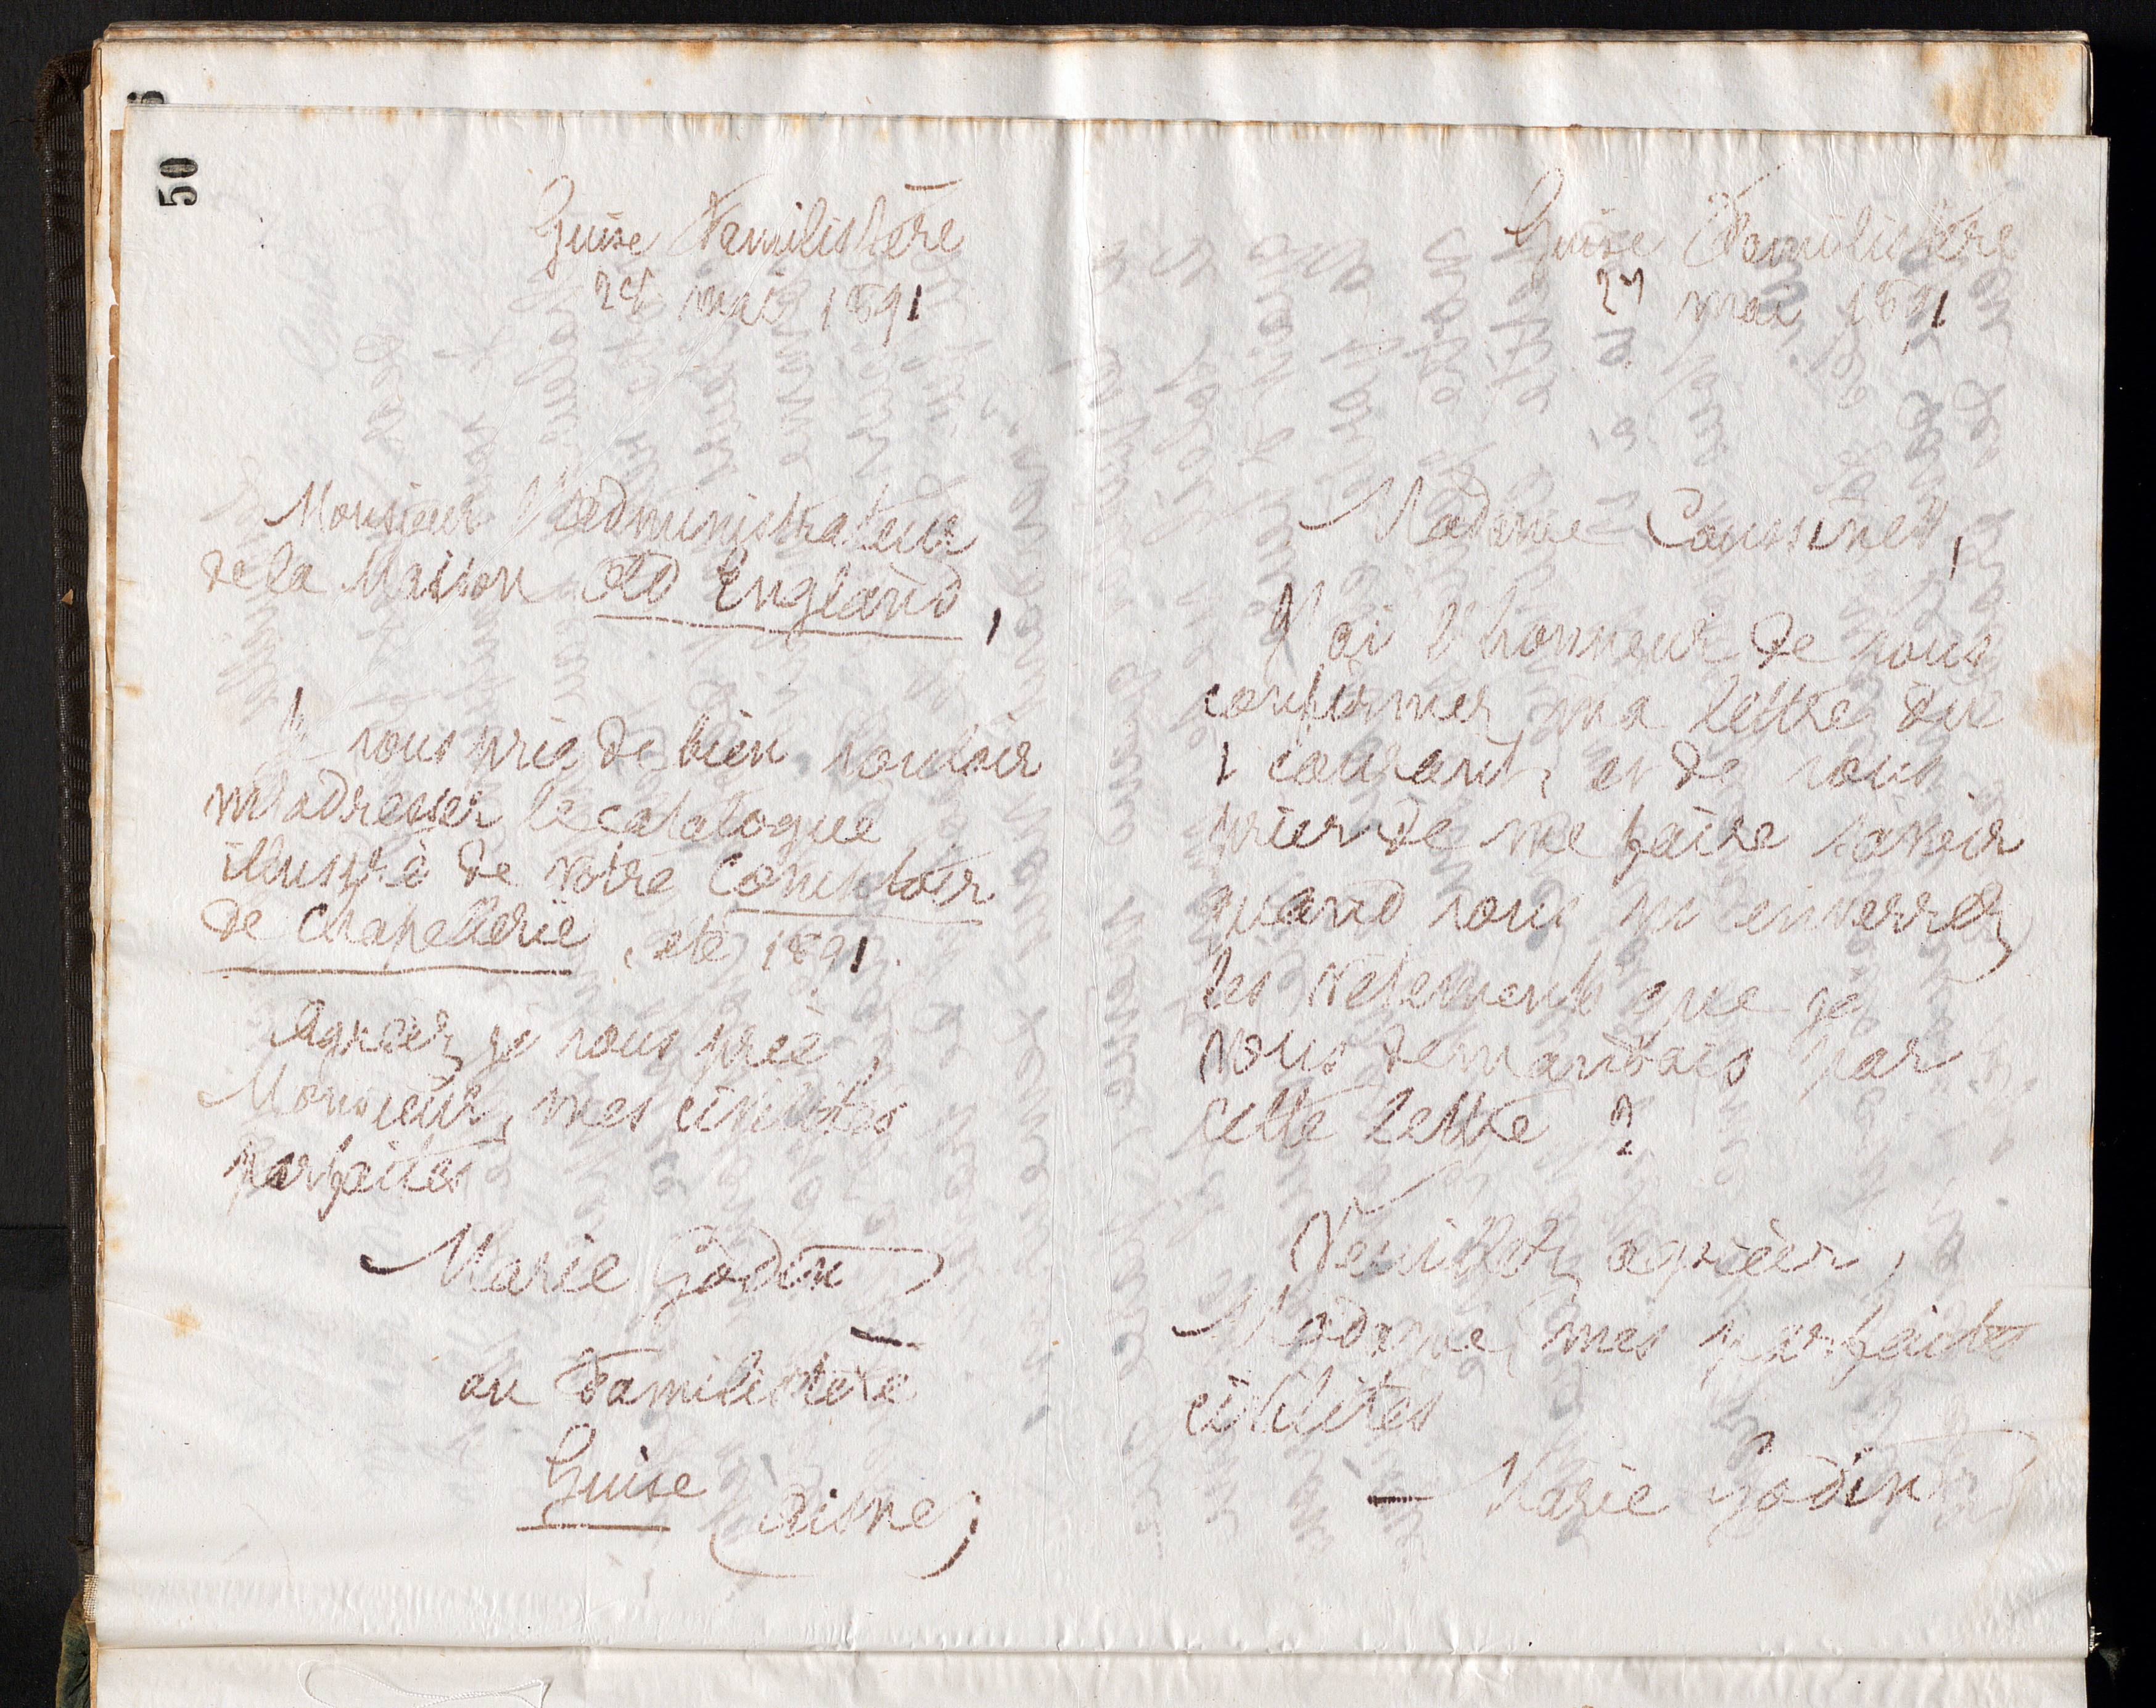 50
Guise Familistère
mai 1891
Monsieur l'administrateur
de la Maison Old England,
Je vous prie de bien vouloir
m'adresser le catalogue
illustré de votre Comptoir
de Chapellerie, été 1891.
Agréez, je vous prie,
Monsieur, mes civilités
parfaites
Marie Godin
au Familistère
Guise
(Aisne)
Guise Familistère
mai 1891
Madame
J'ai l'honneur de vous
confirmer ma lettre du
courant, et de vous
prier de me faire savoir
quand vous m'enverrez
les vêtements que je
vous demandais par
cette lettre ?
Veuillez agréer,
Madame, mes parfaites
civilités
Marie Godin